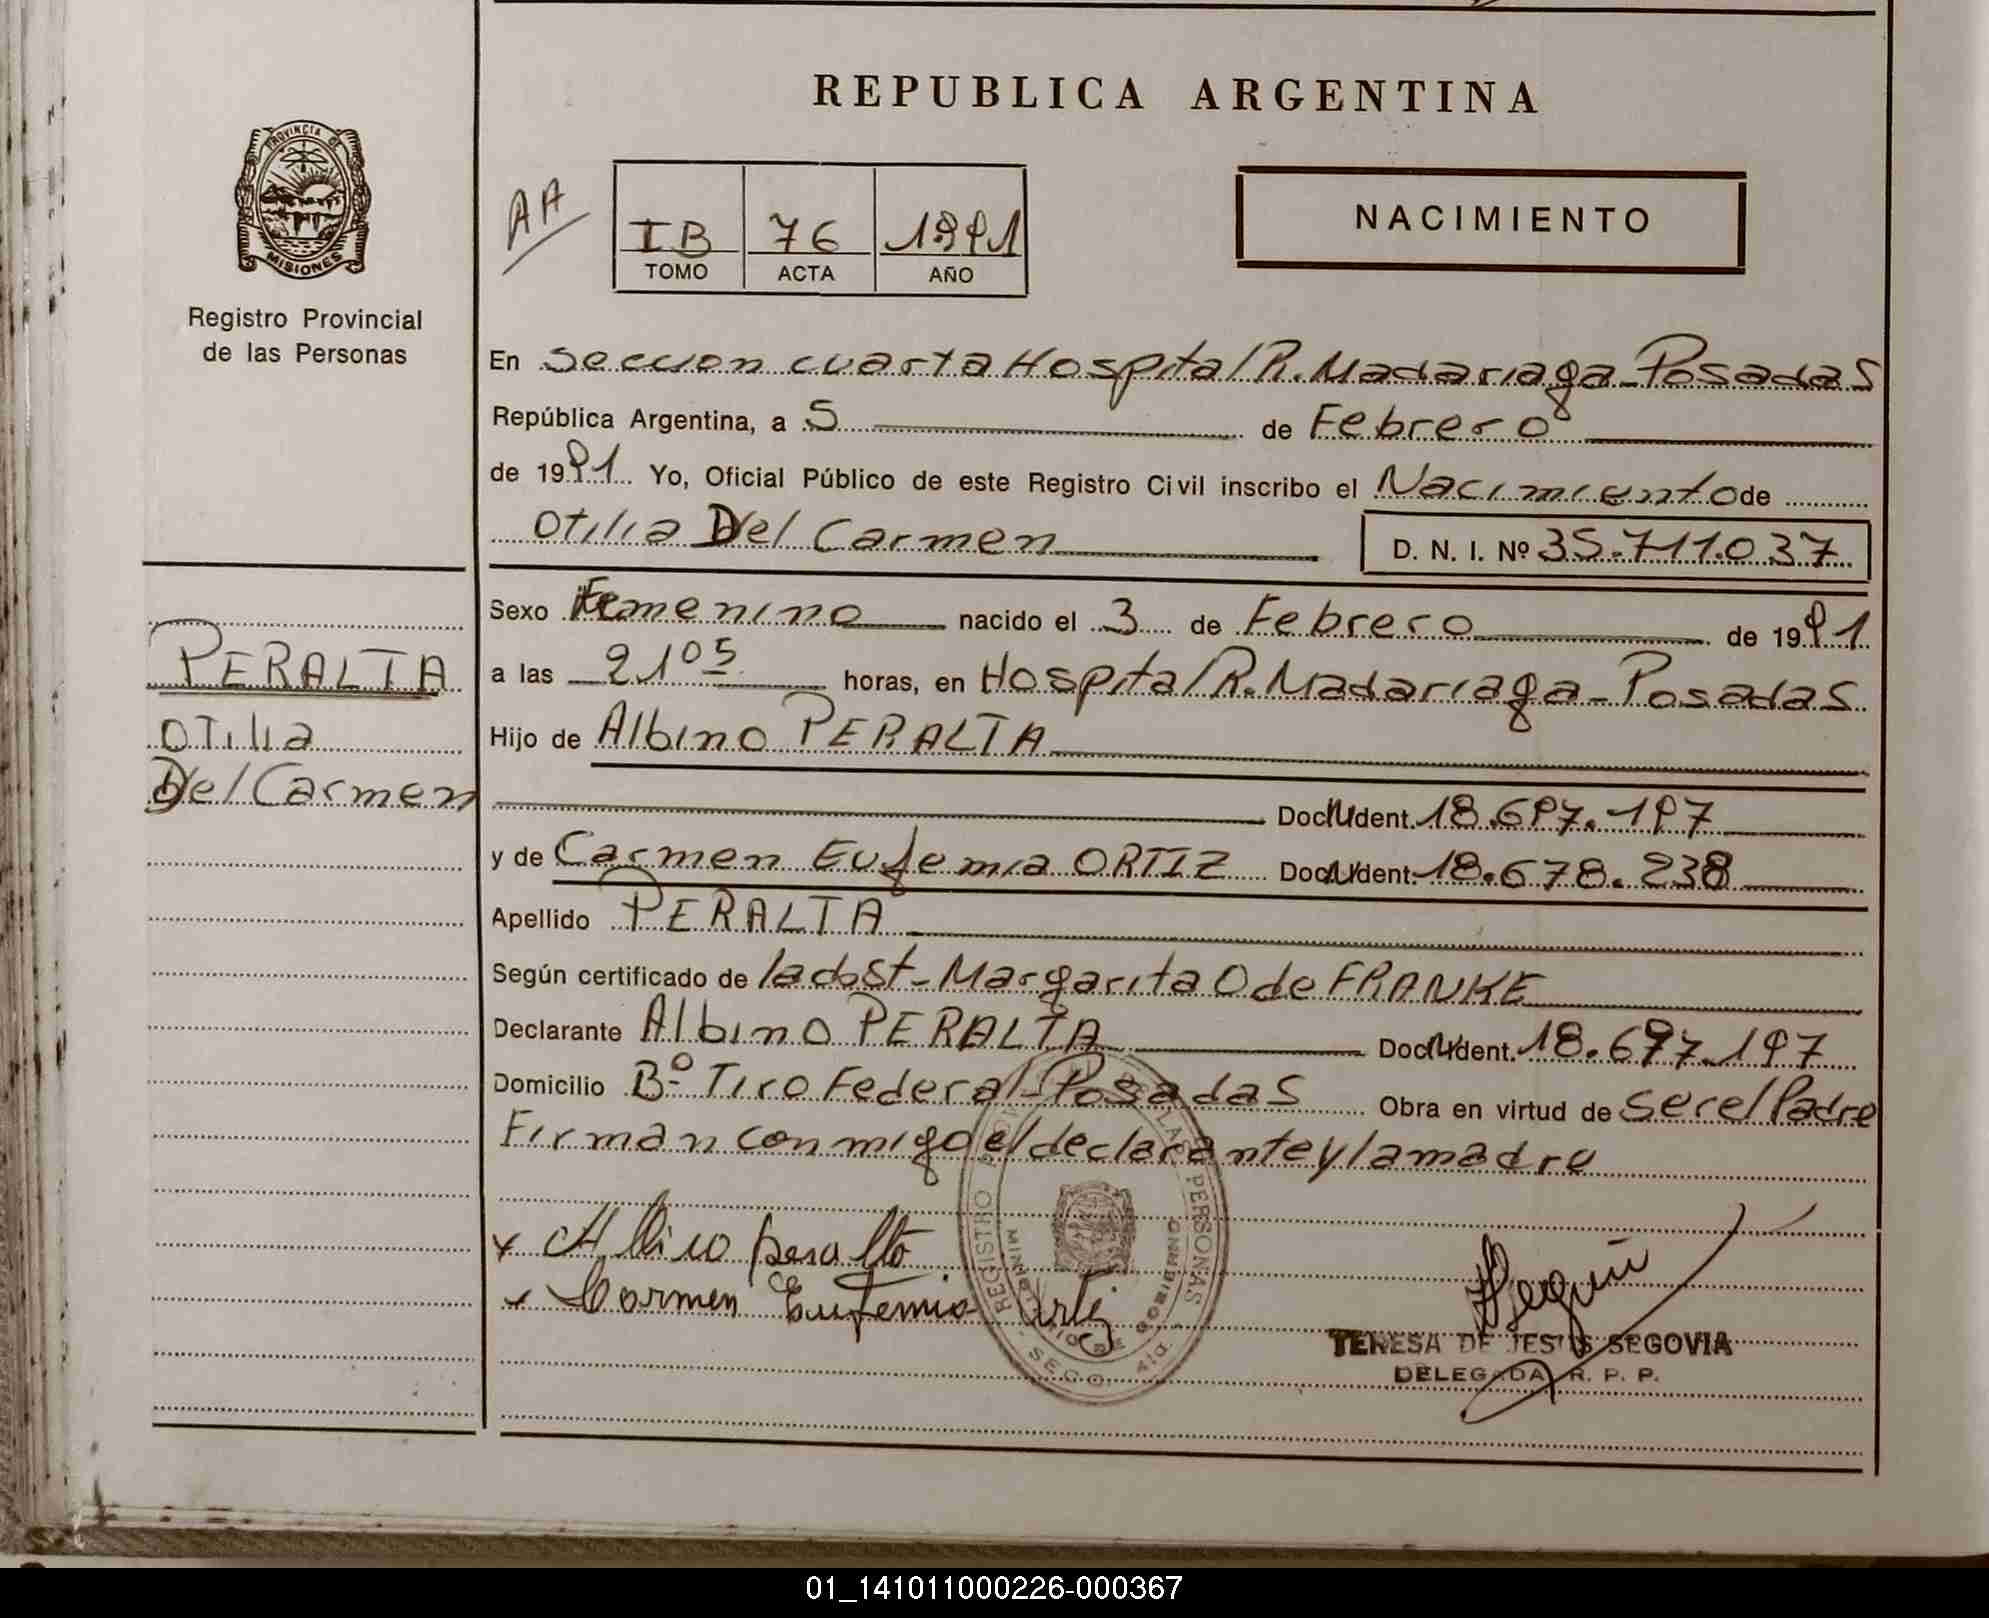 REPUBLICA ARGENTINA
PROVINCIA DE
MISIONES
Registro Provincial
de las Personas
AA
IB 76 1991
TOMO ACTA AÑO
NACIMIENTO
En Seccion cuarta Hospital R. Madariaga - Posadas
República Argentina, a 5 de Febrero
de 1991 Yo, Oficial Público de este Registro Civil inscribo el Nacimiento de
Otilia Del Carmen D. N. I. Nº 35.711.037
Sexo Femenino nacido el 3 de Febrero de 1991
a las 21 05 horas, en Hospital R. Madariaga - Posadas
Hijo de Albino PERALTA
Doc. Ident. 18.697.197
y de Carmen Eufemia ORTIZ Doc. Ident. 18.678.238
Apellido PERALTA
Según certificado de la obst - Margarita O de FRANKE
Declarante Albino PERALTA Doc. Ident. 18.697.197
Domicilio Bº Tiro Federal - Posadas Obra en virtud de ser el Padre
Firman conmigo el declarante y la madre
PERALTA
Otilia
Del Carmen
x Albino Peralta
x Carmen Eufemia Ortiz
REGISTRO PERSONAS
TERESA DE JESUS SEGOVIA
DELEGADA R. P. P.
01_141011000226-000367